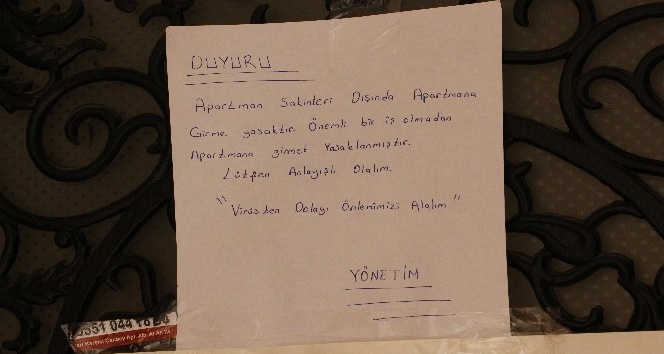 DUYURU
Apartman Sakinleri Dışında Apartmana
Girme yasaktır. Önemli bir iş olmadan
Apartmana girmek Yasaklanmıştır.
Lütfen Anlayışlı Olalım.
"Virüsten Dolayı Önlemimizi Alalım"
YÖNETİM